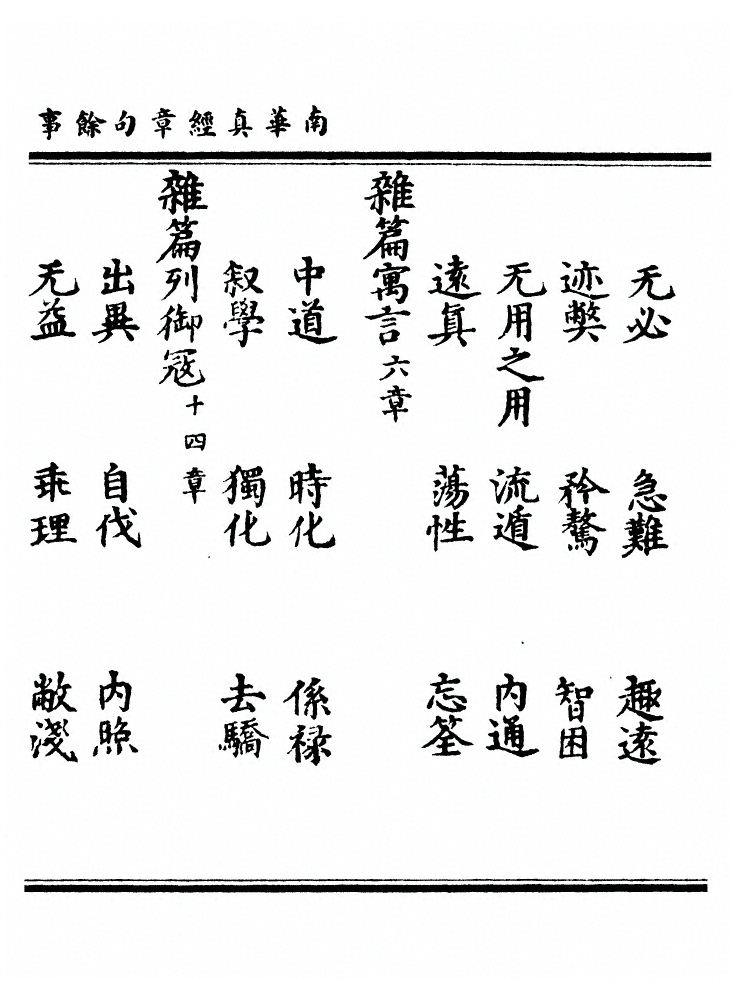 南華真經章句餘事
无必 急難 趣遠
迹弊 矜驁 智困
无用之用 流遁 内通
遠真 蕩性 忘筌
雜篇寓言六章
中道 時化 係禄
叙學 獨化 去驕
雜篇列御冦十四章
出異 自伐 内照
无益 乖理 敝淺